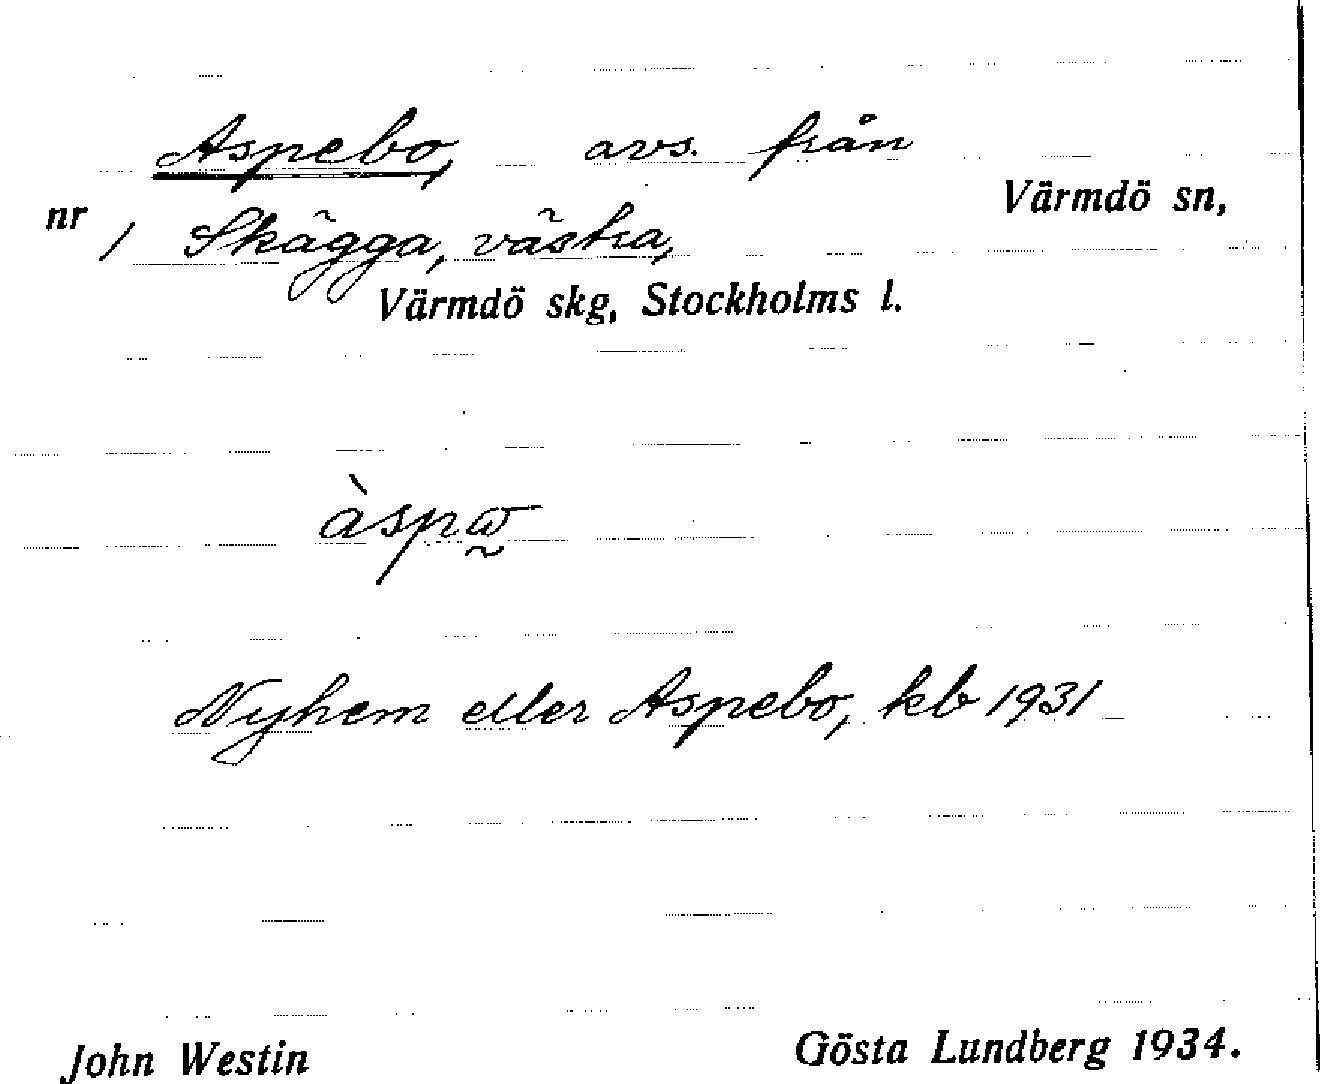 Aspebo, avs. från
Värmdö sn,
nr 1 Skägga, västra,
Värmdö skg, Stockholms l.
Nyhem eller Aspebo, kb 1931
John Westin
Gösta Lundberg 1934.